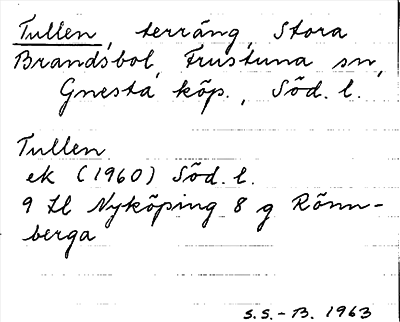 Tullen, terräng, Stora
Brandsbol, Frustuna sn,
Gnesta köp., Söd. l.
Tullen
ek (1960) Söd. l.
9 H Nyköping 8 g Rönn-
berga
S.S.-B. 1963